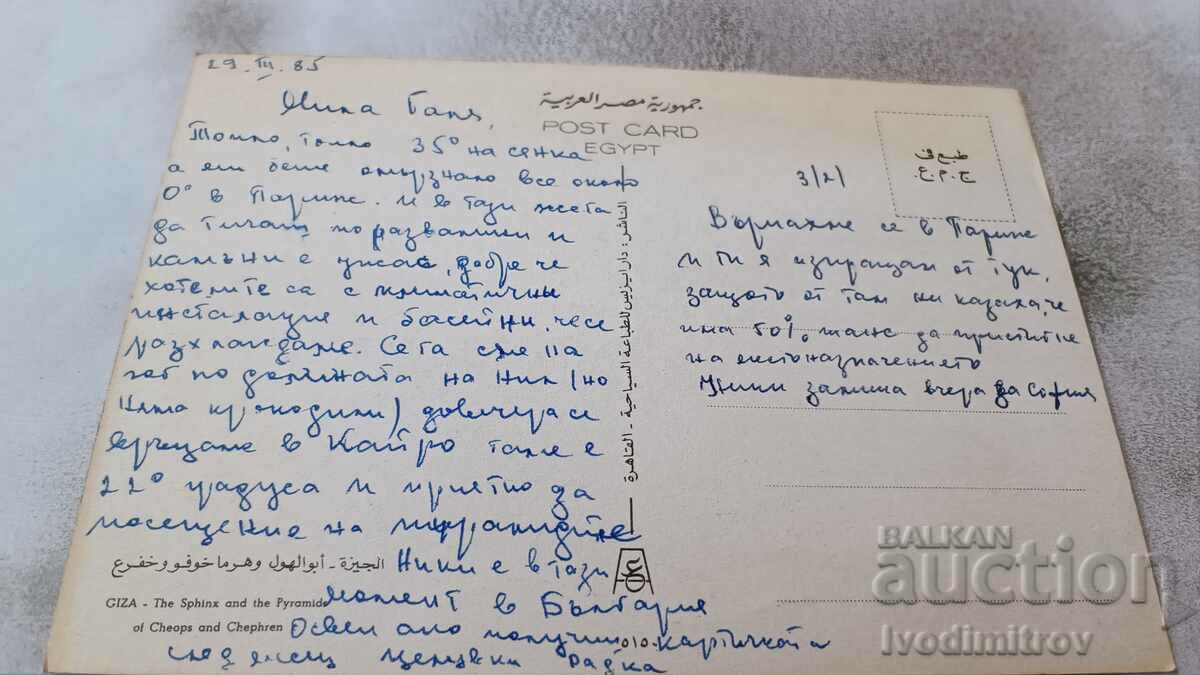 29.III.85
Мила Таня,
جمهورية مصر العربية
POST CARD
EGYPT
طبع في
ج.م.ع.
Топло, топло 35° на сянка
а пък беше омръзнало все около
0° в Париж. И в тази жега
да тичаш по развалини и
камъни е ужас, добре че
хотелите са с климатични
инсталации и басейни, че се
разхлаждаме. Сега сме на
път по долината на Нил (но
няма крокодили) довечера се
връщаме в Кайро там е
22° градуса и приятно за
посещение на пирамидите
Ники е в този
момент в България
Освен ако получиш картичката
след месец целувки Радка
الناشر: دار ايزيس للطباعة السياحية - القاهرة
الجيزة - أبو الهول وهرما خوفو وخفرع
GIZA - The Sphinx and the Pyramids
of Cheops and Chephren
010
3/21
Върнахме се в Париж
и ти я изпращам от тук,
защото от там ни казаха, че
има 50% шанс да пристигне
на местоназначението
Ники замина вчера за София
BALKAN
auction
Ivodimitrov